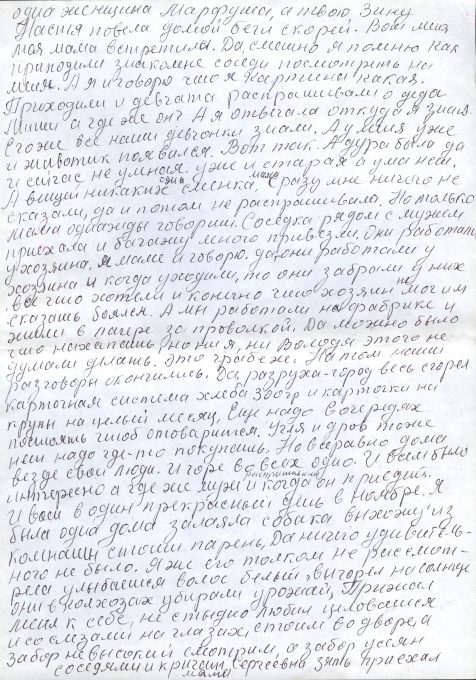 одна женщина Марфуша, а твою Зину
Настя повела домой беги скорей. Вот меня
моя мама встретила. Да, смешно я помню как
приходили знакомые соседи посмотреть на
меня. А я и говорю что я картина какая.
Приходили и девчата распрашивали о деда
Миши а где же он? А я отвечала откуда я знаю.
Его же все наши девчонки знали. А у меня уже
и животик появился. Вот так. А дура была да
и сейчас не умная. уже и старая а ума нет.
А вещей никаких одна сменка. Мама сразу мне ничего не
сказали, да и потом не распрашивала. Но только
мама однажды говорит. Соседка рядом с мужем
приехала и багажу много привезли. Они работали
у хозяина. Я маме и говорю, да они работали у
хозяина и когда уходили, то они забрали у них
все что хотели и конечно что хозяин не мог им
сказать боялся. А мы работали на фабрике и
жили в лагере за проволкой. Да можно было
что нахапать но ни я, ни Володя этого не
думали делать. Это грабеж. На этом наши
разговоры окончились. Да, разруха-город весь сгорел
карточная система хлеба 300гр и карточки на
крупы на целый месяц. Еще надо в очередях
постоять чтоб отоварится. Угля и дров тоже
нет надо где-то покупать. Но всеравно дома
везде свои люди. И горе во всех одно. И всем было
интересно а где же муж и когда он приедит.
И вот в один прекрасный день в Ноябре. Я
была одна дома залаяла собака выхожу из
комнаты стоит парень, Да ничего удивитель-
ного не было. Я же его толком не рассмот-
рела улыбается волос белый, выгорел на солнце
они в колхозах убирали урожай, Прижал
меня к себе, не стыдно любил целоваться
и со слезами на глазах, стоим во дворе, а
забор не высокий смотрим, а забор усеян
соседями и кричат, Сергеевна зять приехал
мама